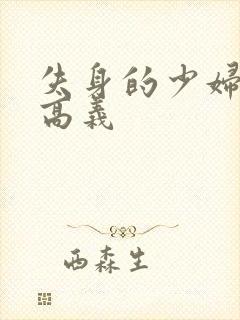 失身的少婦
高義
西森生